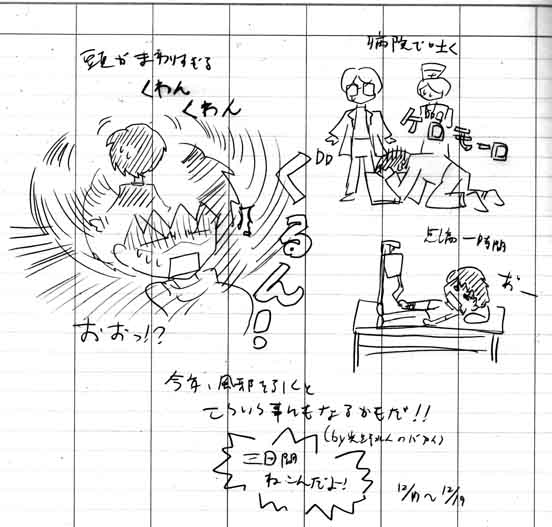 頭がまわりすぎる
くわん
くわん
くるん!!
おおっ!?
病院で吐く
ケロモーロ
DD
点滴一時間
お〜
今年、風邪を引くと
えらい事んもなるかもだ!!
三日間
ねこんだよ!
12/17〜12/19